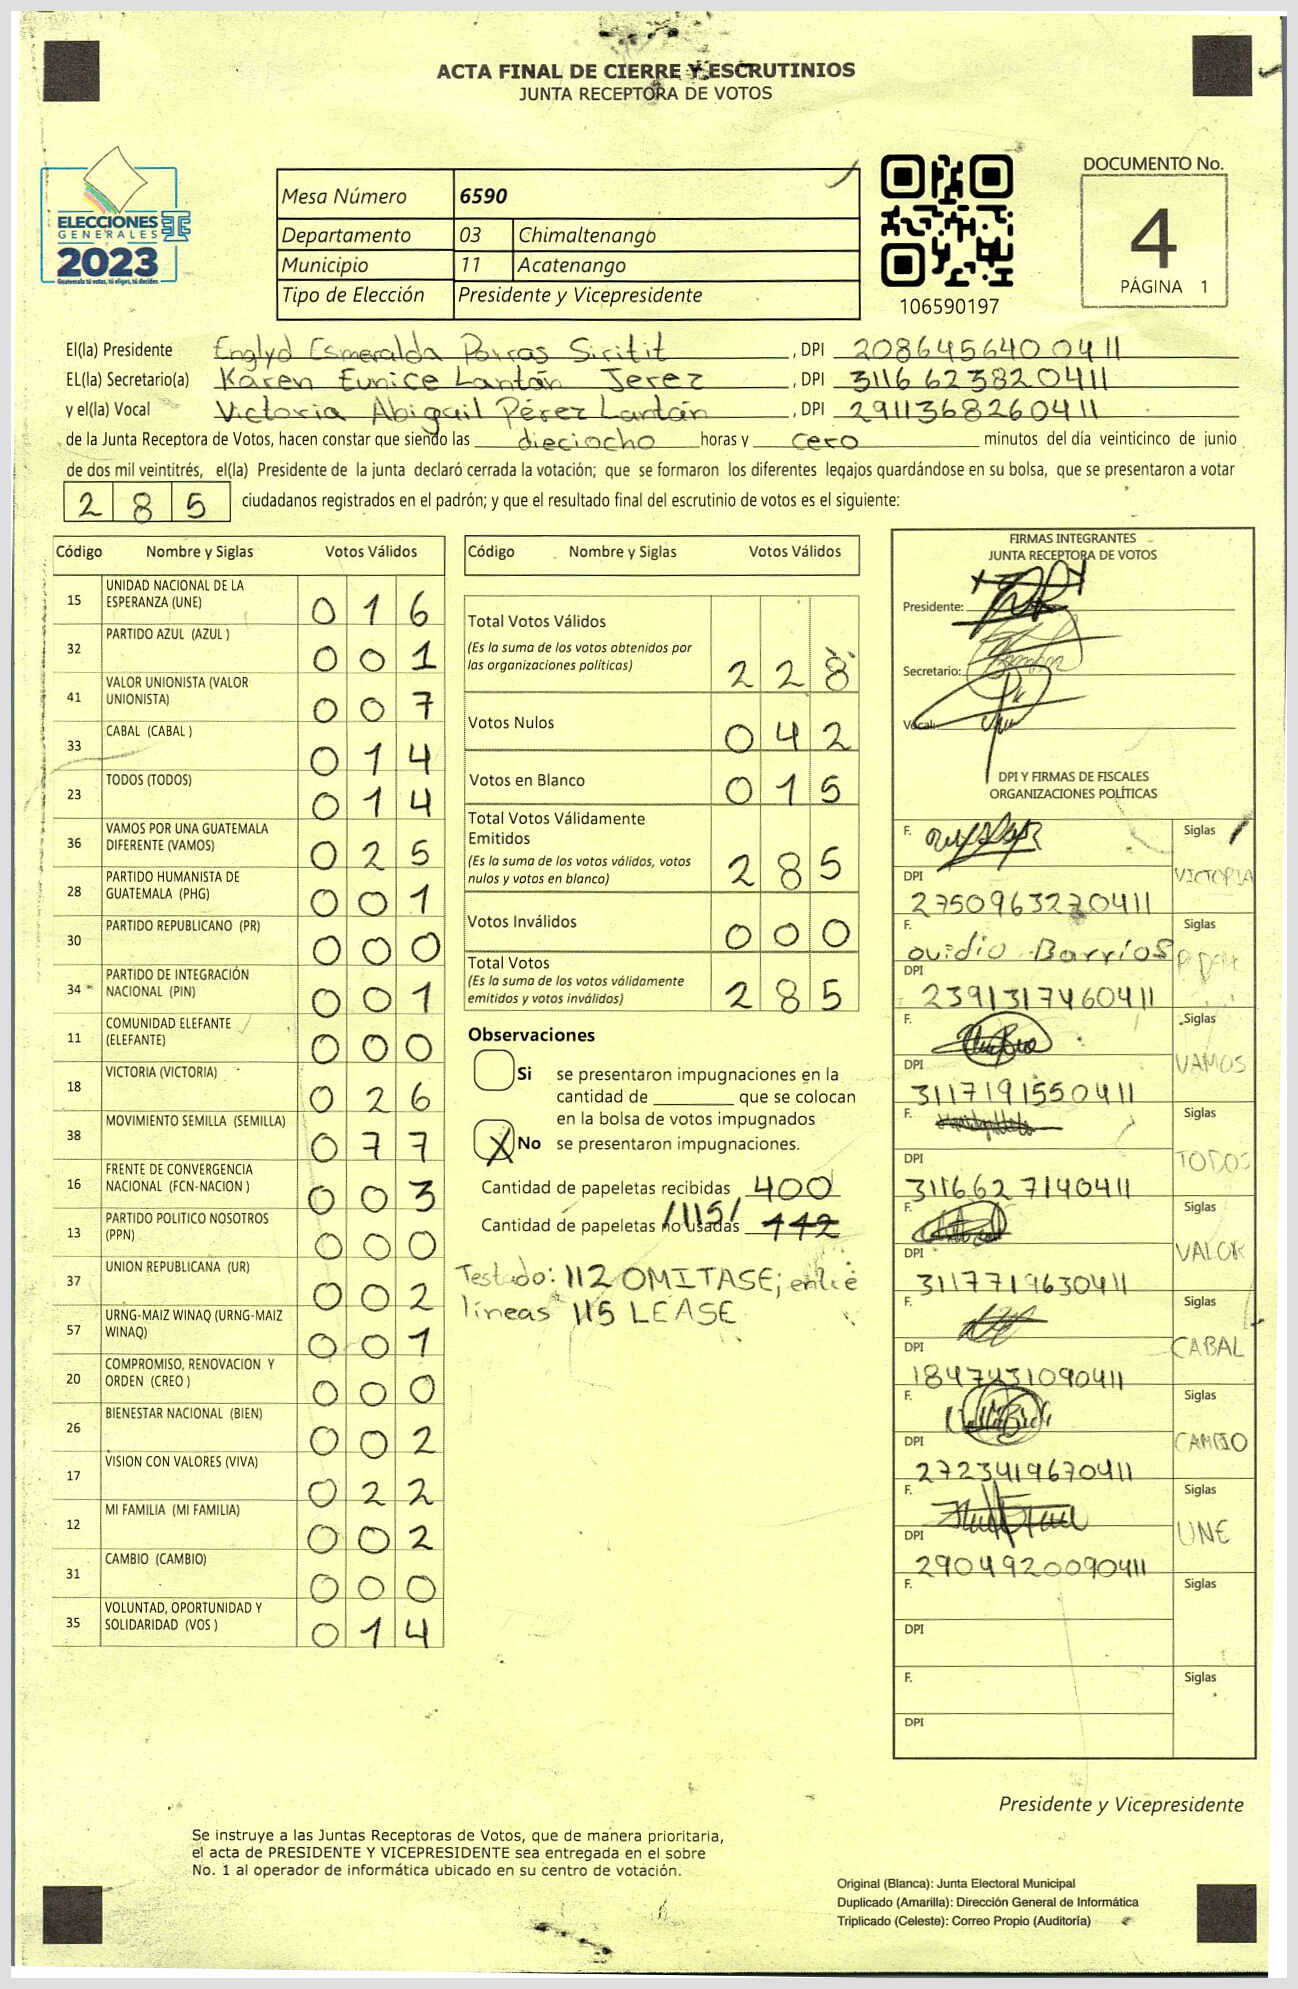 ACTA FINAL DE CIERRE Y ESCRUTINIOS
JUNTA RECEPTORA DE VOTOS
ELECCIONES
GENERALES
2023
Guatemala tú votas, tú eliges, tú decides
Mesa Número 6590
Departamento 03 Chimaltenango
Municipio 11 Acatenango
Tipo de Elección Presidente y Vicepresidente
106590197
DOCUMENTO No.
4
PÁGINA 1
El(la) Presidente Englyd Esmeralda Porras Siritit, DPI 2086456400411
EL(la) Secretario(a) Karen Eunice Lantán Jerez, DPI 3116623820411
y el(la) Vocal Victoria Abigail Pérez Lantán, DPI 2911368260411
de la Junta Receptora de Votos, hacen constar que siendo las dieciocho horas y cero minutos del día veinticinco de junio
de dos mil veintitrés, el(la) Presidente de la junta declaró cerrada la votación; que se formaron los diferentes legajos guardándose en su bolsa, que se presentaron a votar
285 ciudadanos registrados en el padrón; y que el resultado final del escrutinio de votos es el siguiente:
Código Nombre y Siglas Votos Válidos
15 UNIDAD NACIONAL DE LA ESPERANZA (UNE) 016
32 PARTIDO AZUL (AZUL ) 001
41 VALOR UNIONISTA (VALOR UNIONISTA) 007
33 CABAL (CABAL ) 014
23 TODOS (TODOS) 014
36 VAMOS POR UNA GUATEMALA DIFERENTE (VAMOS) 025
28 PARTIDO HUMANISTA DE GUATEMALA (PHG) 001
30 PARTIDO REPUBLICANO (PR) 000
34 PARTIDO DE INTEGRACIÓN NACIONAL (PIN) 001
11 COMUNIDAD ELEFANTE (ELEFANTE) 000
18 VICTORIA (VICTORIA) 026
38 MOVIMIENTO SEMILLA (SEMILLA) 077
16 FRENTE DE CONVERGENCIA NACIONAL (FCN-NACION ) 003
13 PARTIDO POLITICO NOSOTROS (PPN) 000
37 UNION REPUBLICANA (UR) 002
57 URNG-MAIZ WINAQ (URNG-MAIZ WINAQ) 001
20 COMPROMISO, RENOVACION Y ORDEN (CREO ) 000
26 BIENESTAR NACIONAL (BIEN) 002
17 VISION CON VALORES (VIVA) 022
12 MI FAMILIA (MI FAMILIA) 002
31 CAMBIO (CAMBIO) 000
35 VOLUNTAD, OPORTUNIDAD Y SOLIDARIDAD (VOS ) 014
Código Nombre y Siglas Votos Válidos
Total Votos Válidos 228
(Es la suma de los votos obtenidos por
las organizaciones políticas)
Votos Nulos 042
Votos en Blanco 015
Total Votos Válidamente
Emitidos 285
(Es la suma de los votos válidos, votos
nulos y votos en blanco)
Votos Inválidos 000
Total Votos 285
(Es la suma de los votos válidamente
emitidos y votos inválidos)
Observaciones
Si se presentaron impugnaciones en la
cantidad de ________ que se colocan
en la bolsa de votos impugnados
X No se presentaron impugnaciones.
Cantidad de papeletas recibidas 400
/115/
Cantidad de papeletas no usadas 112
Testado: 112 OMITASE; entre
líneas 115 LEASE
FIRMAS INTEGRANTES
JUNTA RECEPTORA DE VOTOS
Presidente:
Secretario:
Vocal:
DPI Y FIRMAS DE FISCALES
ORGANIZACIONES POLÍTICAS
F. Siglas VICTORIA
DPI 2750963270411
F. Ovidio Barrios Siglas
DPI 2391317460411
F. Siglas VAMOS
DPI 3117191550411
F. Siglas TODOS
DPI 3116627140411
F. Siglas VALOR
DPI 3117719630411
F. Siglas CABAL
DPI 1847431090411
F. Siglas CAMBIO
DPI 2723419670411
F. Siglas UNE
DPI 2904920090411
F. Siglas
DPI
F. Siglas
DPI
Presidente y Vicepresidente
Se instruye a las Juntas Receptoras de Votos, que de manera prioritaria,
el acta de PRESIDENTE Y VICEPRESIDENTE sea entregada en el sobre
No. 1 al operador de informática ubicado en su centro de votación.
Original (Blanca): Junta Electoral Municipal
Duplicado (Amarilla): Dirección General de Informática
Triplicado (Celeste): Correo Propio (Auditoría)